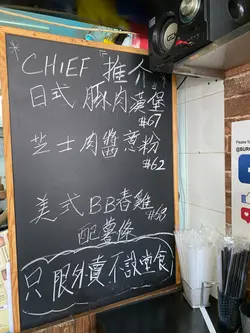 *CHIEF「推介」
日式 豚肉漢堡
#67
芝士肉醬意粉
#62
美式BB春雞
#68
配薯條
只限外賣 不設堂食